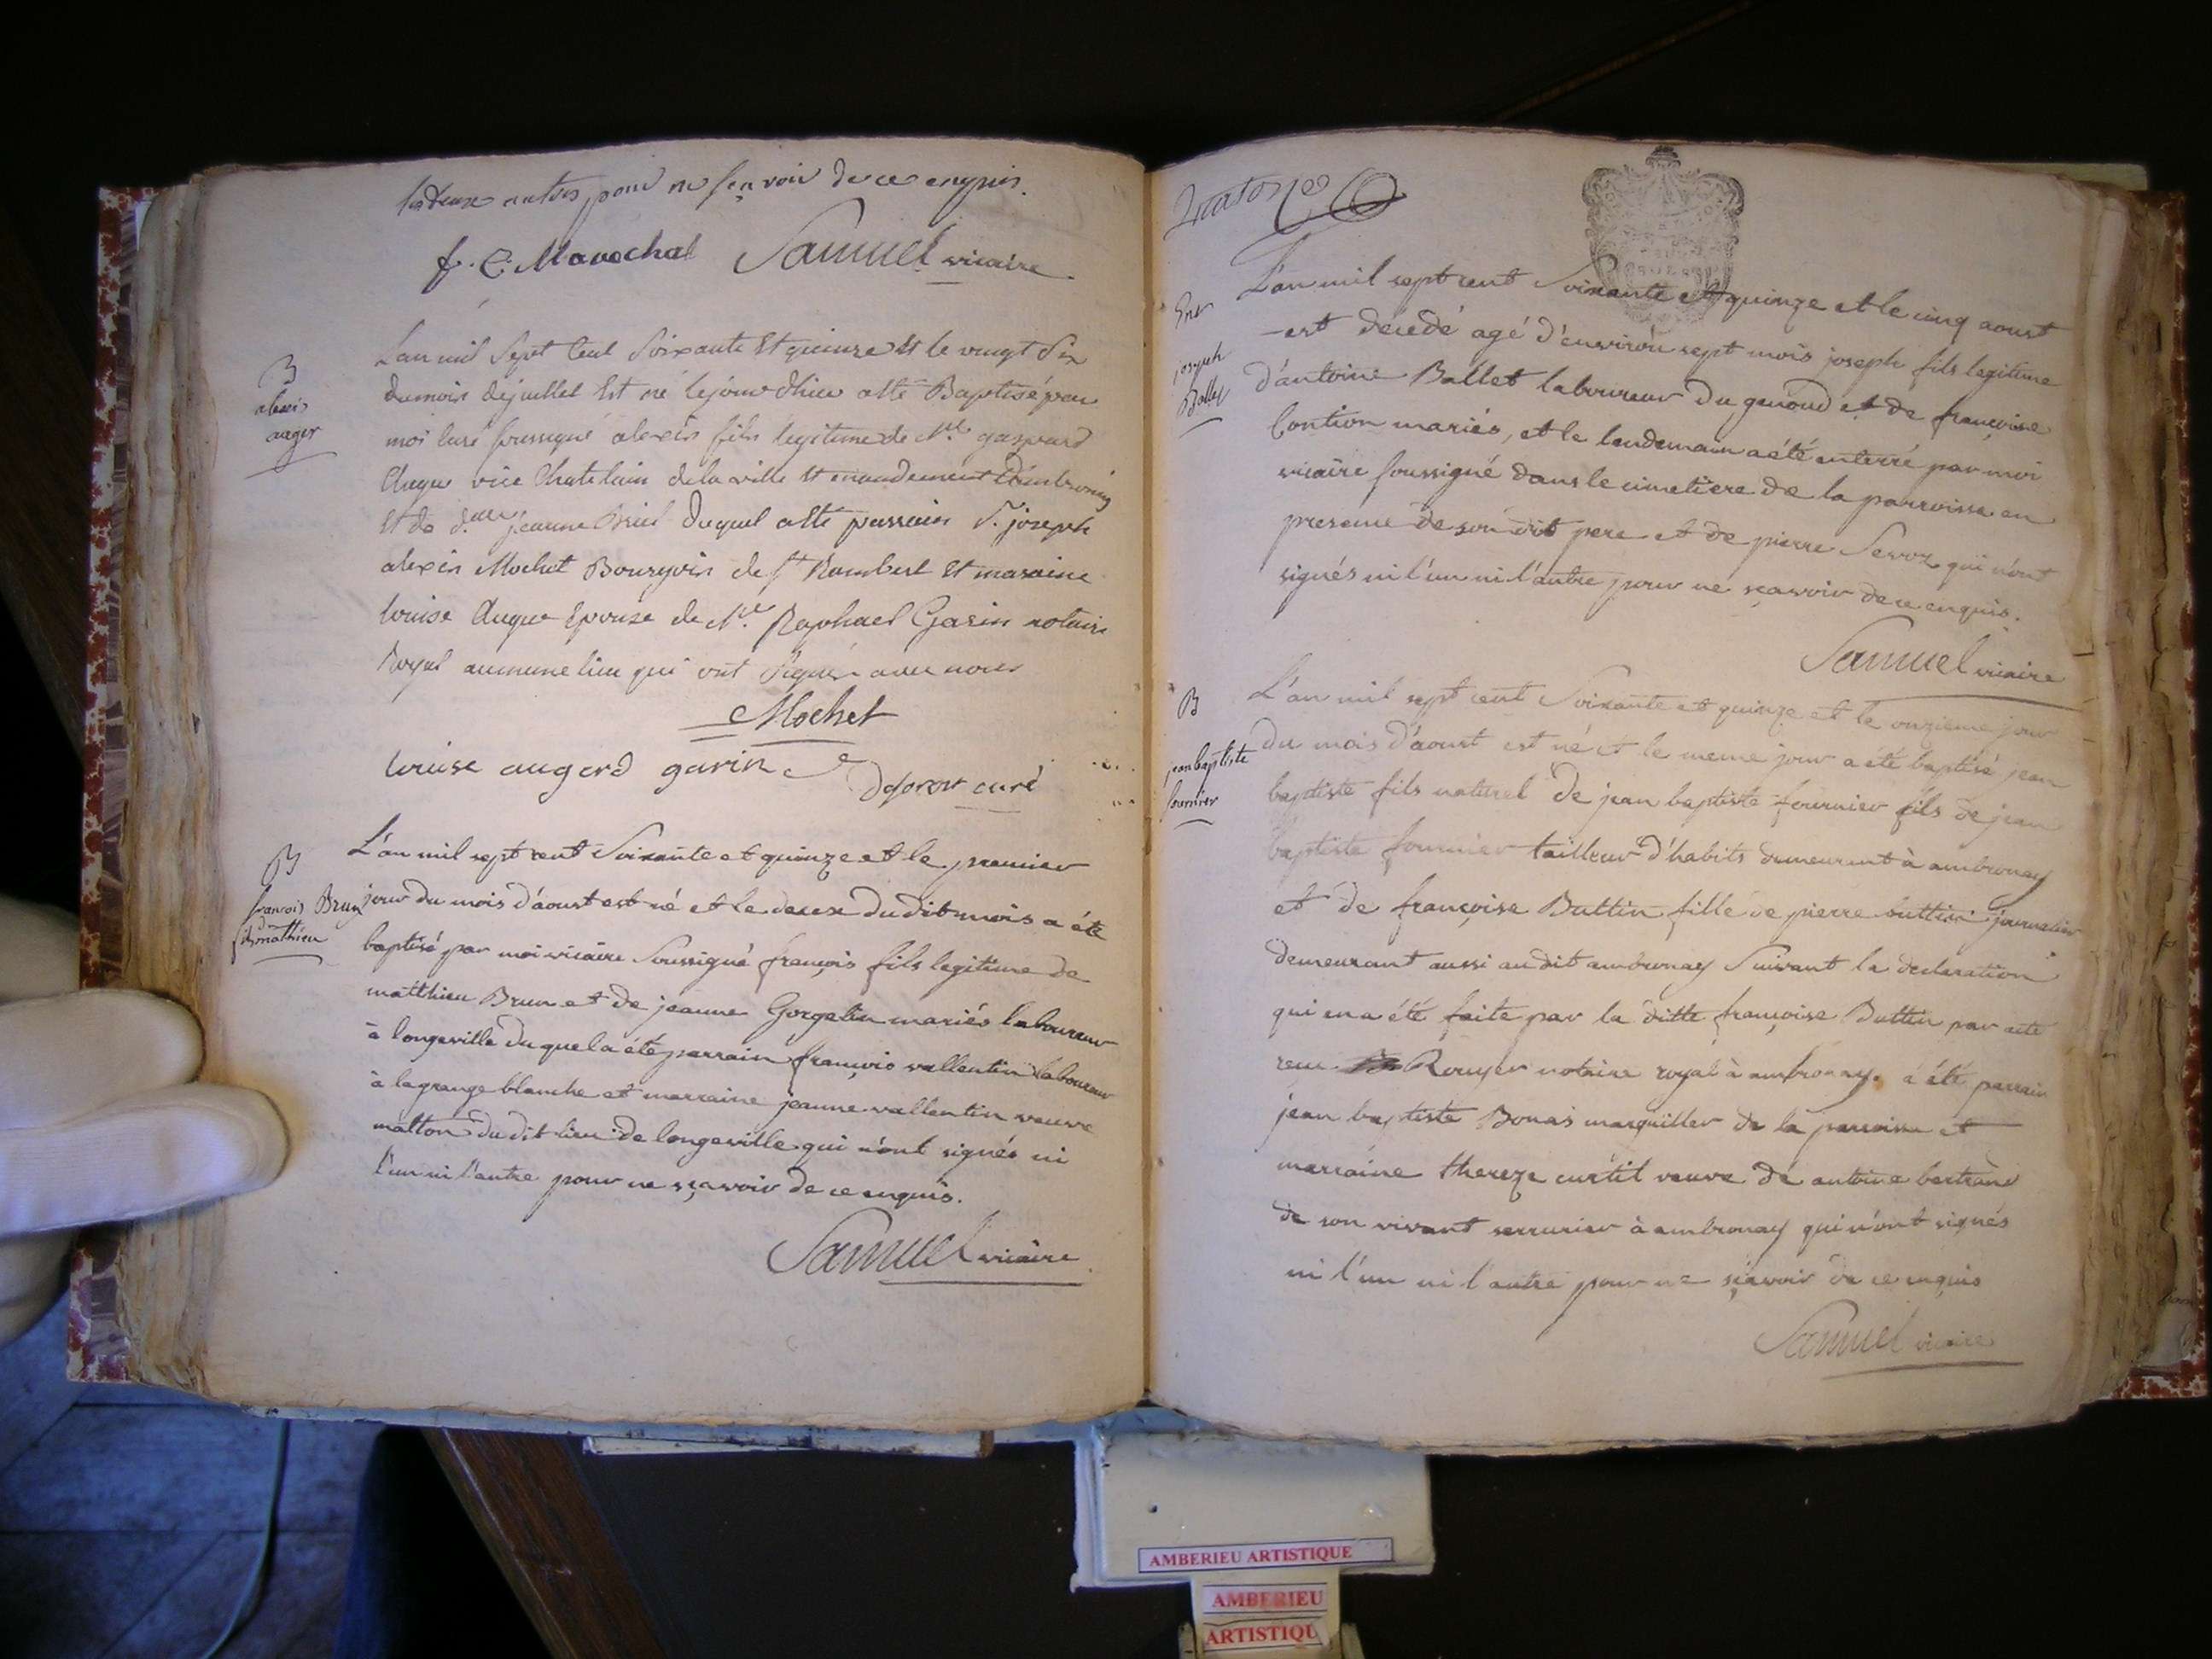 les deux autres pour ne sçavoir de ce enquis.
f. C. Marechal Samuel vicaire
B
alexis
auger
L'an mil sept cent soixante et quinze et le vingt six
du mois de juillet est né le jour dhier a été Baptisé par
moi curé soussigné alexis fils legitime de Me. gaspard
Auger vice Chatelain de la ville et mandement d'ambronay
et de d.lle jeanne duquel a été parrain Sr. joseph
alexis Mochet Bourgois de St Rambert et maraine
louise Auger Epouse de Me. Raphael Garin notaire
Royal au meme lieu qui ont signés avec nous
Mochet
louise augerd garin
curé
B
françois Brun
fils mathieu
L'an mil sept cent soixante et quinze et le premier
jour du mois d'aoust est né et le deux du dit mois a été
baptisé par moi vicaire soussigné françois fils legitime de
matthieu Brun et de jeanne Gorgelin mariés laboureur
à longeville du quel a été parrain françois vallentin laboureur
à la grange blanche et marraine jeanne vallentin veuve
matton du dit lieu de longeville qui n'ont signés ni
l'un ni l'autre pour ne sçavoir de ce enquis.
Samuel vicaire
Ent
joseph
Ballet
L'an mil sept cent soixante et quinze et le cinq aoust
est decedé agé d'environ sept mois joseph fils legitime
d'antoine Ballet laboureur du genoud et de françoise
Contion mariés, et le lendemain a été enterré par moi
vicaire soussigné dans le cimetiere de la parroisse en
presence de son dit pere et de pierre Servoz qui n'ont
signés ni l'un ni l'autre pour ne sçavoir de ce enquis.
Samuel vicaire
B
jean baptiste
fournier
L'an mil sept cent soixante et quinze et le onzieme jour
du mois d'aoust est né et le meme jour a été baptisé jean
baptiste fils naturel de jean baptiste fournier fils de jean
baptiste fournier tailleur d'habits demeurant à ambronay
et de françoise Buttin fille de pierre buttin journalier
demeurant aussi au dit ambronay suivant la declaration
qui en a été faite par la ditte françoise Buttin par acte
recu Rouyer notaire royal à ambronay. a été parrain
jean baptiste Bonas marguiller de la parroisse et
marraine thereze curtil veuve de antoine bertrand
de son vivant serrurier à ambronay qui n'ont signés
ni l'un ni l'autre pour ne sçavoir de ce enquis
Samuel vicaire
AMBERIEU ARTISTIQUE
AMBERIEU
ARTISTIQU